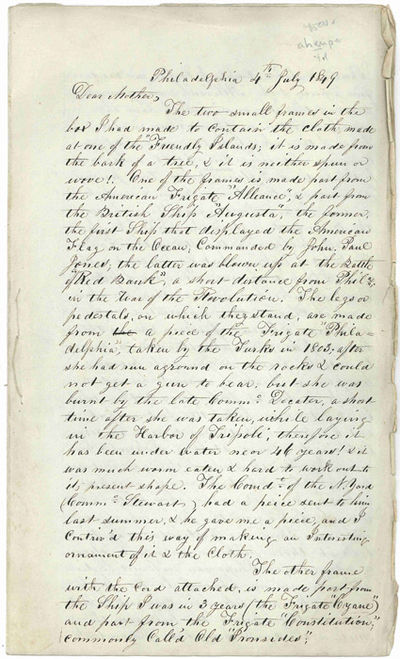 Philadelphia 4th July 1849
Dear Mother,
The two small frames in the
box I had made to contain the cloth, made
at one of the "Friendly Islands; it is made from
the bark of a tree, & it is neither spun or
wove!. One of the frames is made part from
the American Frigate "Alliance", & part from
the British Ship "Augusta", the former,
the first Ship that displayed the American
Flag on the Ocean, Commanded by John Paul
Jones; the latter was blown up at the Battle
of "Red Bank", a short distance from Phila
in the time of the Revolution. The legs or
pedestals, on which they stand, are made
from the a piece of the Frigate "Phila=
delphia", taken by the Turks in 1803; after
she had run aground on the rocks & could
not get a gun to bear; but she was
burnt by the late Comme Decater, a short
time after she was taken, while laying
in the Harbor of Tripoli, therefore it
has been under water near 46 years! & it
was much worm eaten & hard to work out to
its present shape. The Comdt of the N. Yard
(Comme Stewart) had a peice sent to him
last summer, & he gave me a piece, and I
Contriv'd this way of making an Interesting
ornament of it & the Cloth.
The other frame
with the Cord attached, is made part from
the Ship I was in 3 years (the Frigate "Cyane")
and part from the Frigate "Constitution",
commonly Call'd Old "Ironsides",